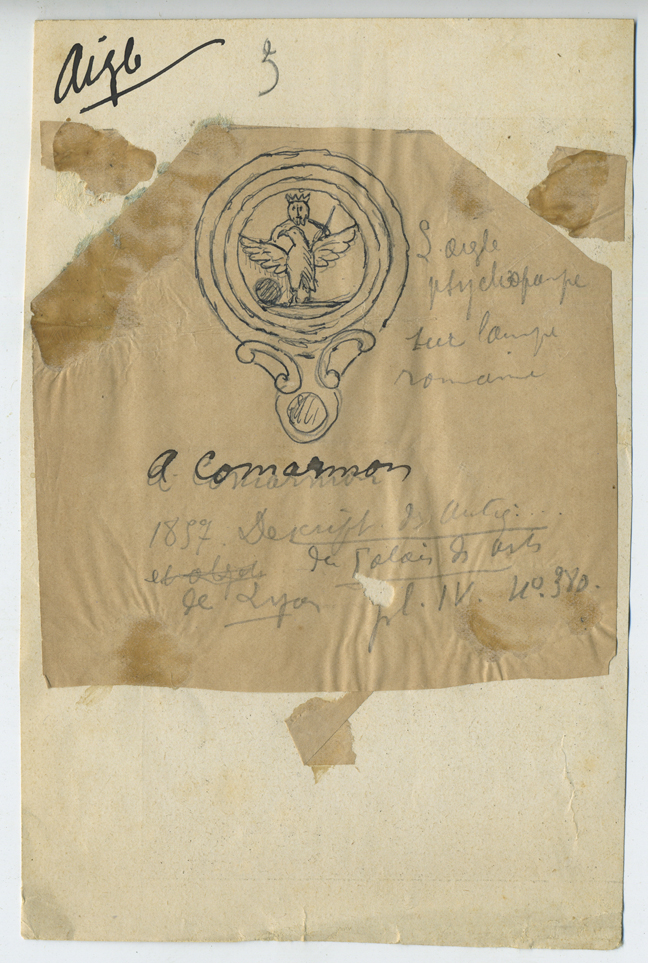 Aigle
5
L'aigle
psychopompe
sur lampe
romaine
A Comarmon
A Comarmon
1857. Descript. des Antiq...
et objets du Palais des arts
de Lyon pl. IV. No. 380.